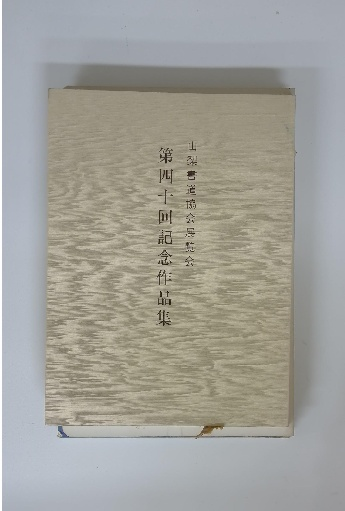 山梨書道協会展覧会
第四十回記念作品集